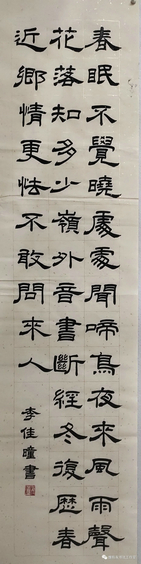 春眠不覺曉處處聞啼鳥夜來風雨聲
花落知多少嶺外音書斷經冬復歷春
近鄉情更怯不敢問來人
李佳曈書